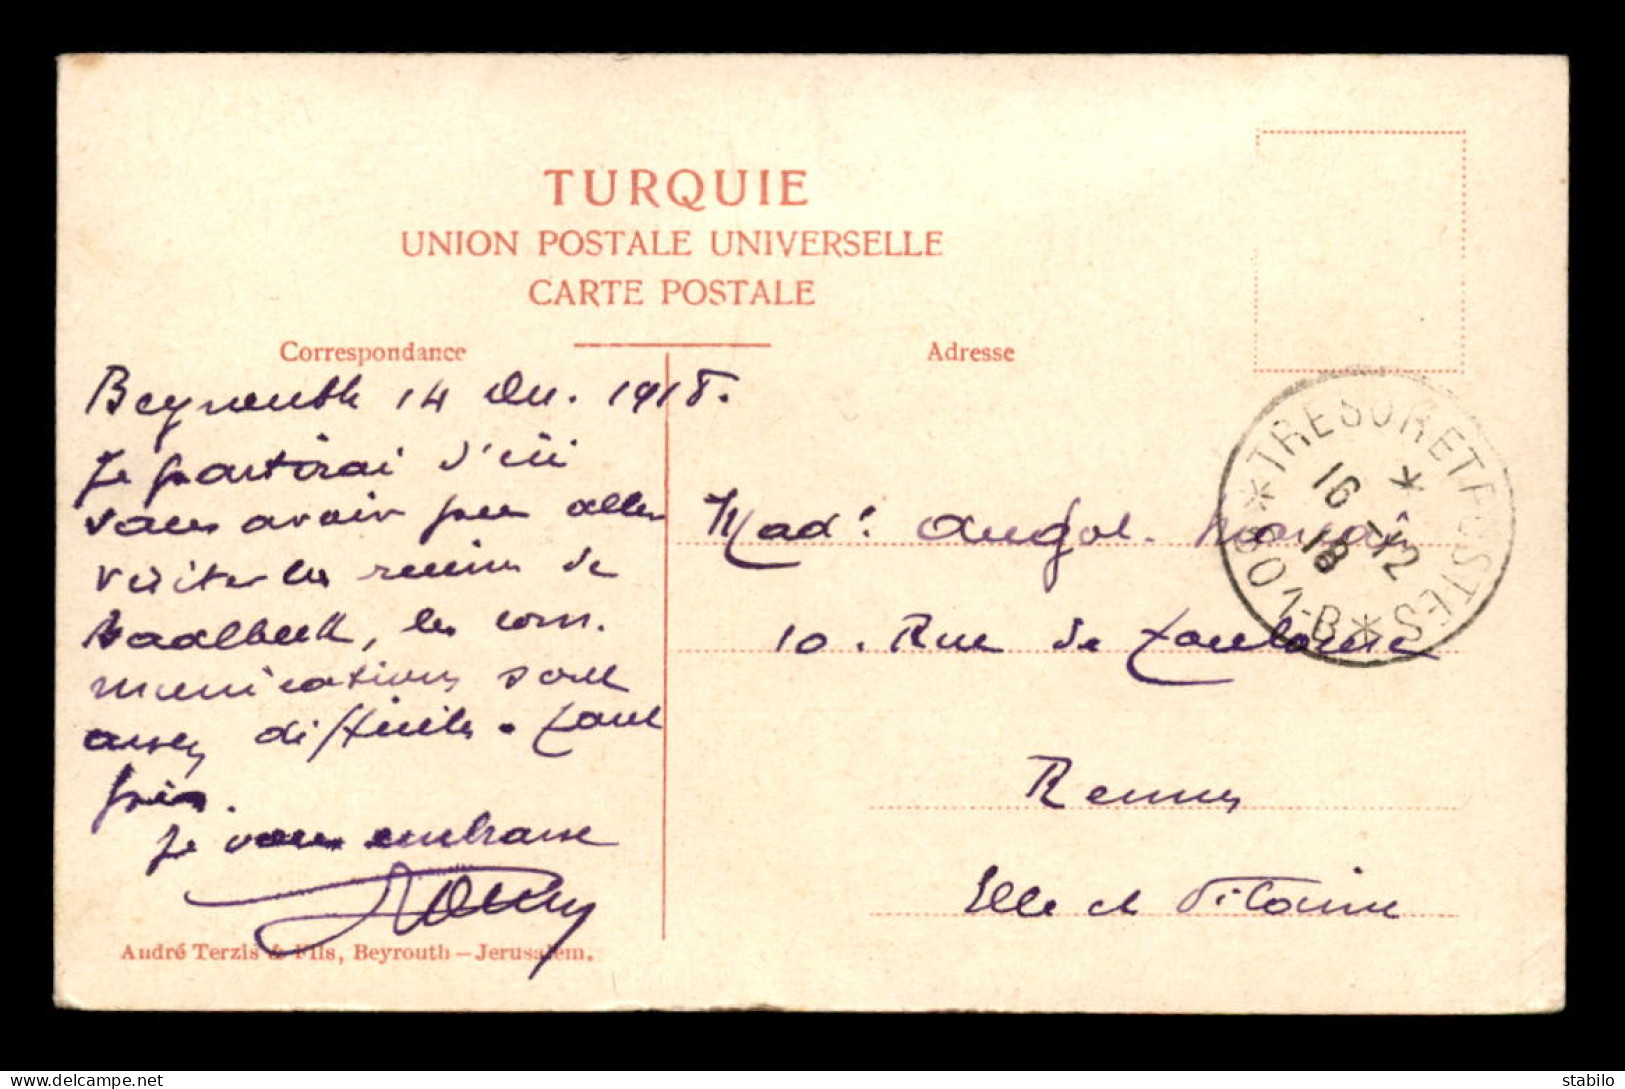 TURQUIE
UNION POSTALE UNIVERSELLE
CARTE POSTALE
Correspondance
Adresse
Beyrouth 14 Déc. 1918.
Je partirai d'ici
sans avoir pu aller
visiter les ruines de
Baalbeck, les com.
munications sont
assez difficiles. Tant
pis.
Je vous embrasse
André Terzis & Fils, Beyrouth — Jerusalem.
Mad.
10. Rue de Toulouse
Rennes
Ille et Vilaine
* TRESOR ET POSTES * 601-B
16 -12
18
*
stabilo